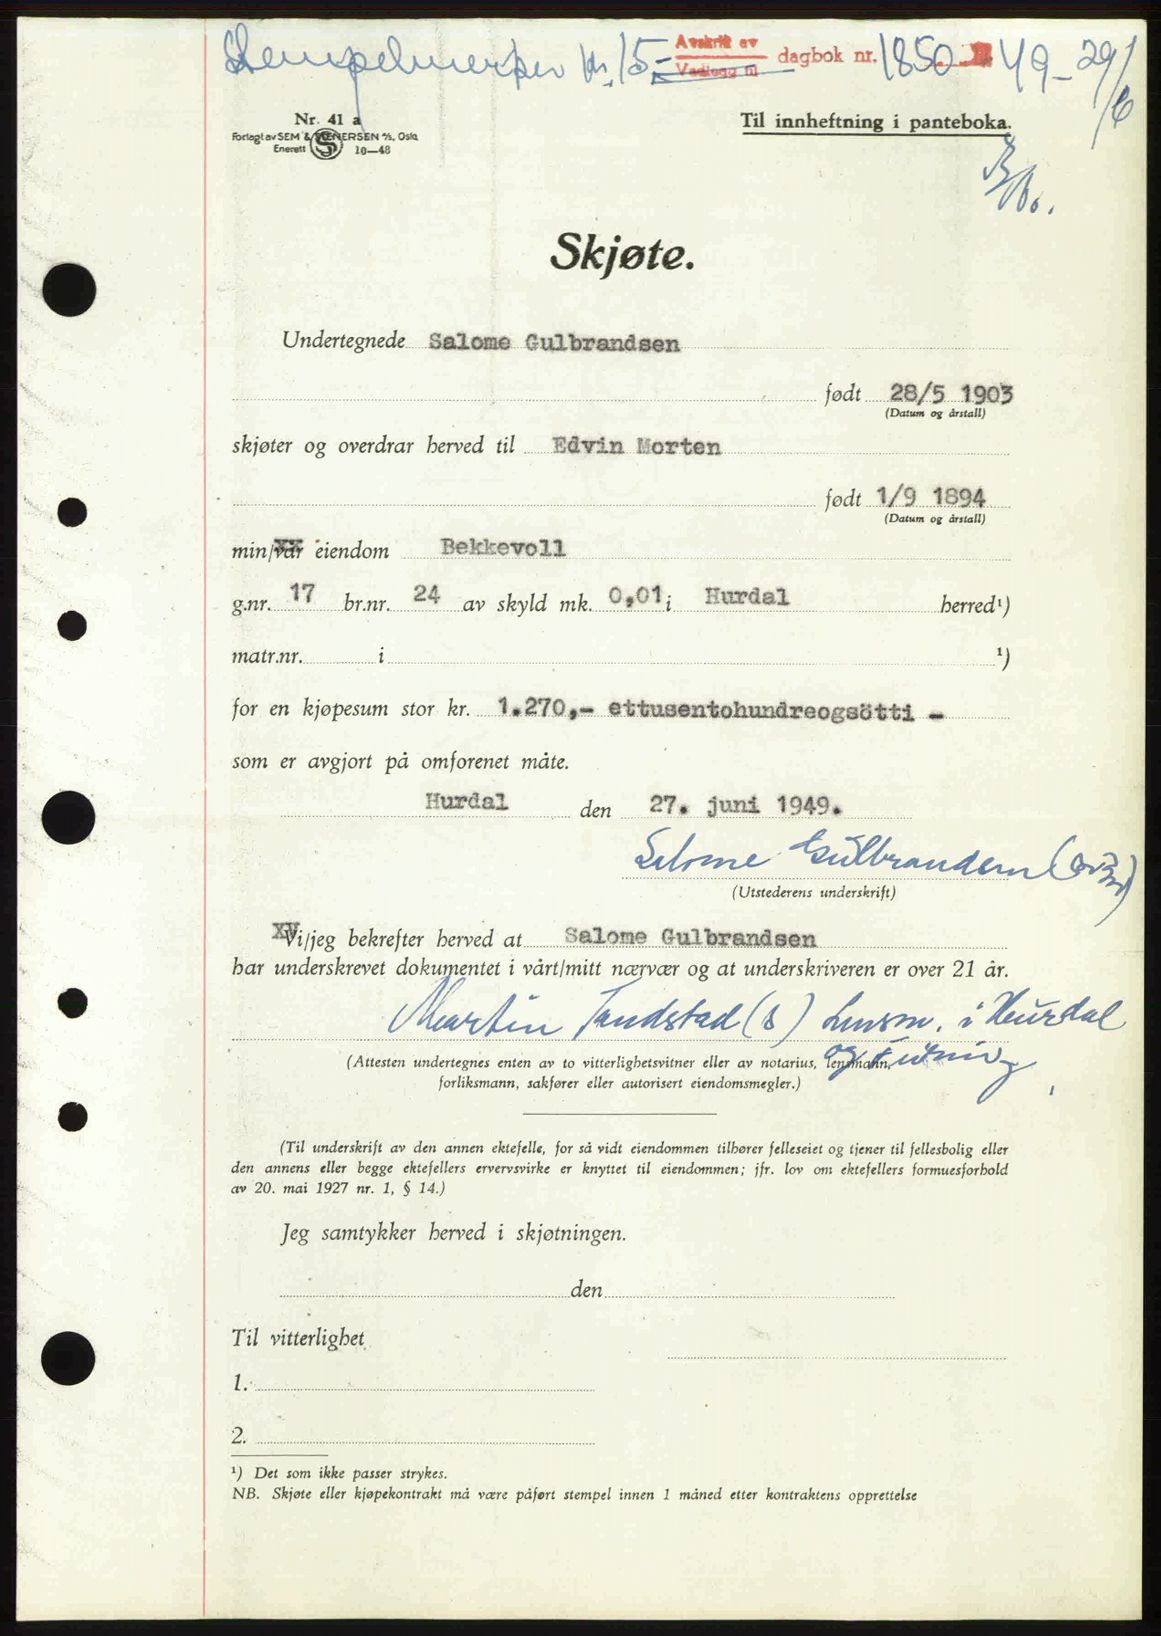 Stempelmerker kr. 15.-
Avskrift av
Vedlegg til
dagbok nr. 1850 - 49 - 29/6
Nr. 41 a
Forlagt av SEM & STENERSEN A/S, Oslo
Enerett 10—48
Til innheftning i panteboka.
Skjøte.
Undertegnede Salome Gulbrandsen
født 28/5 1903
(Datum og årstall)
skjøter og overdrar herved til Edvin Morten
født 1/9 1894
(Datum og årstall)
min/vår eiendom Bekkevoll
g.nr. 17 br.nr. 24 av skyld mk. 0,01 i Hurdal herred¹)
matr.nr. i ¹)
for en kjøpesum stor kr. 1.270,- ettusentohundreogsötti -
som er avgjort på omforenet måte.
Hurdal den 27. juni 1949.
Salome Gulbrandsen
(Utstederens underskrift)
Vi/jeg bekrefter herved at Salome Gulbrandsen
har underskrevet dokumentet i vårt/mitt nærvær og at underskriveren er over 21 år.
Martin Sandstad (s) Lensm. i Hurdal
(Attesten undertegnes enten av to vitterlighetsvitner eller av notarius, lensmann,
forliksmann, sakfører eller autorisert eiendomsmegler.)
(Til underskrift av den annen ektefelle, for så vidt eiendommen tilhører felleseiet og tjener til fellesbolig eller
den annens eller begge ektefellers ervervsvirke er knyttet til eiendommen; jfr. lov om ektefellers formuesforhold
av 20. mai 1927 nr. 1, § 14.)
Jeg samtykker herved i skjøtningen.
den
Til vitterlighet
1.
2.
¹) Det som ikke passer strykes.
NB. Skjøte eller kjøpekontrakt må være påført stempel innen 1 måned etter kontraktens opprettelse